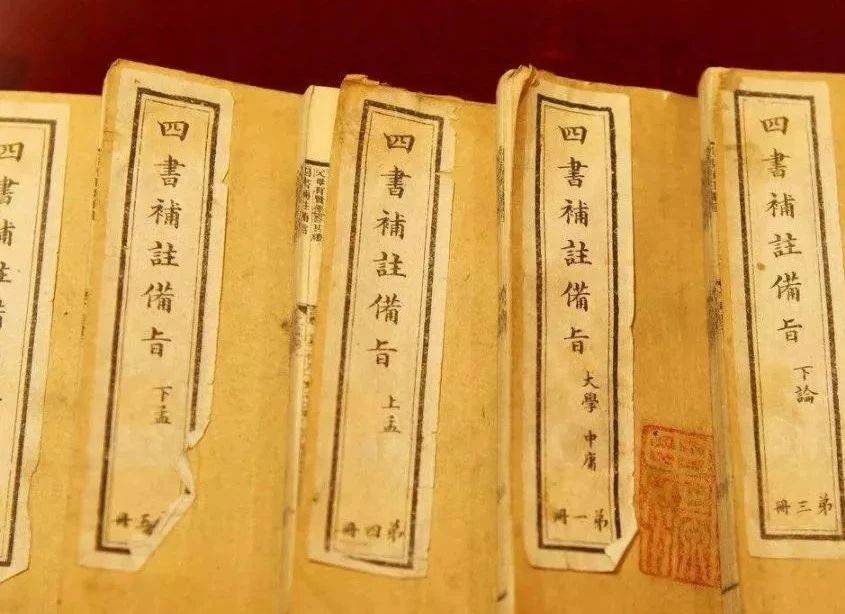 四書補註備旨
下論
弟三冊
四書補註備旨
大學 中庸
弟一冊
四書補註備旨
上孟
弟四冊
四書補註備旨
下孟
冊
四書補註備